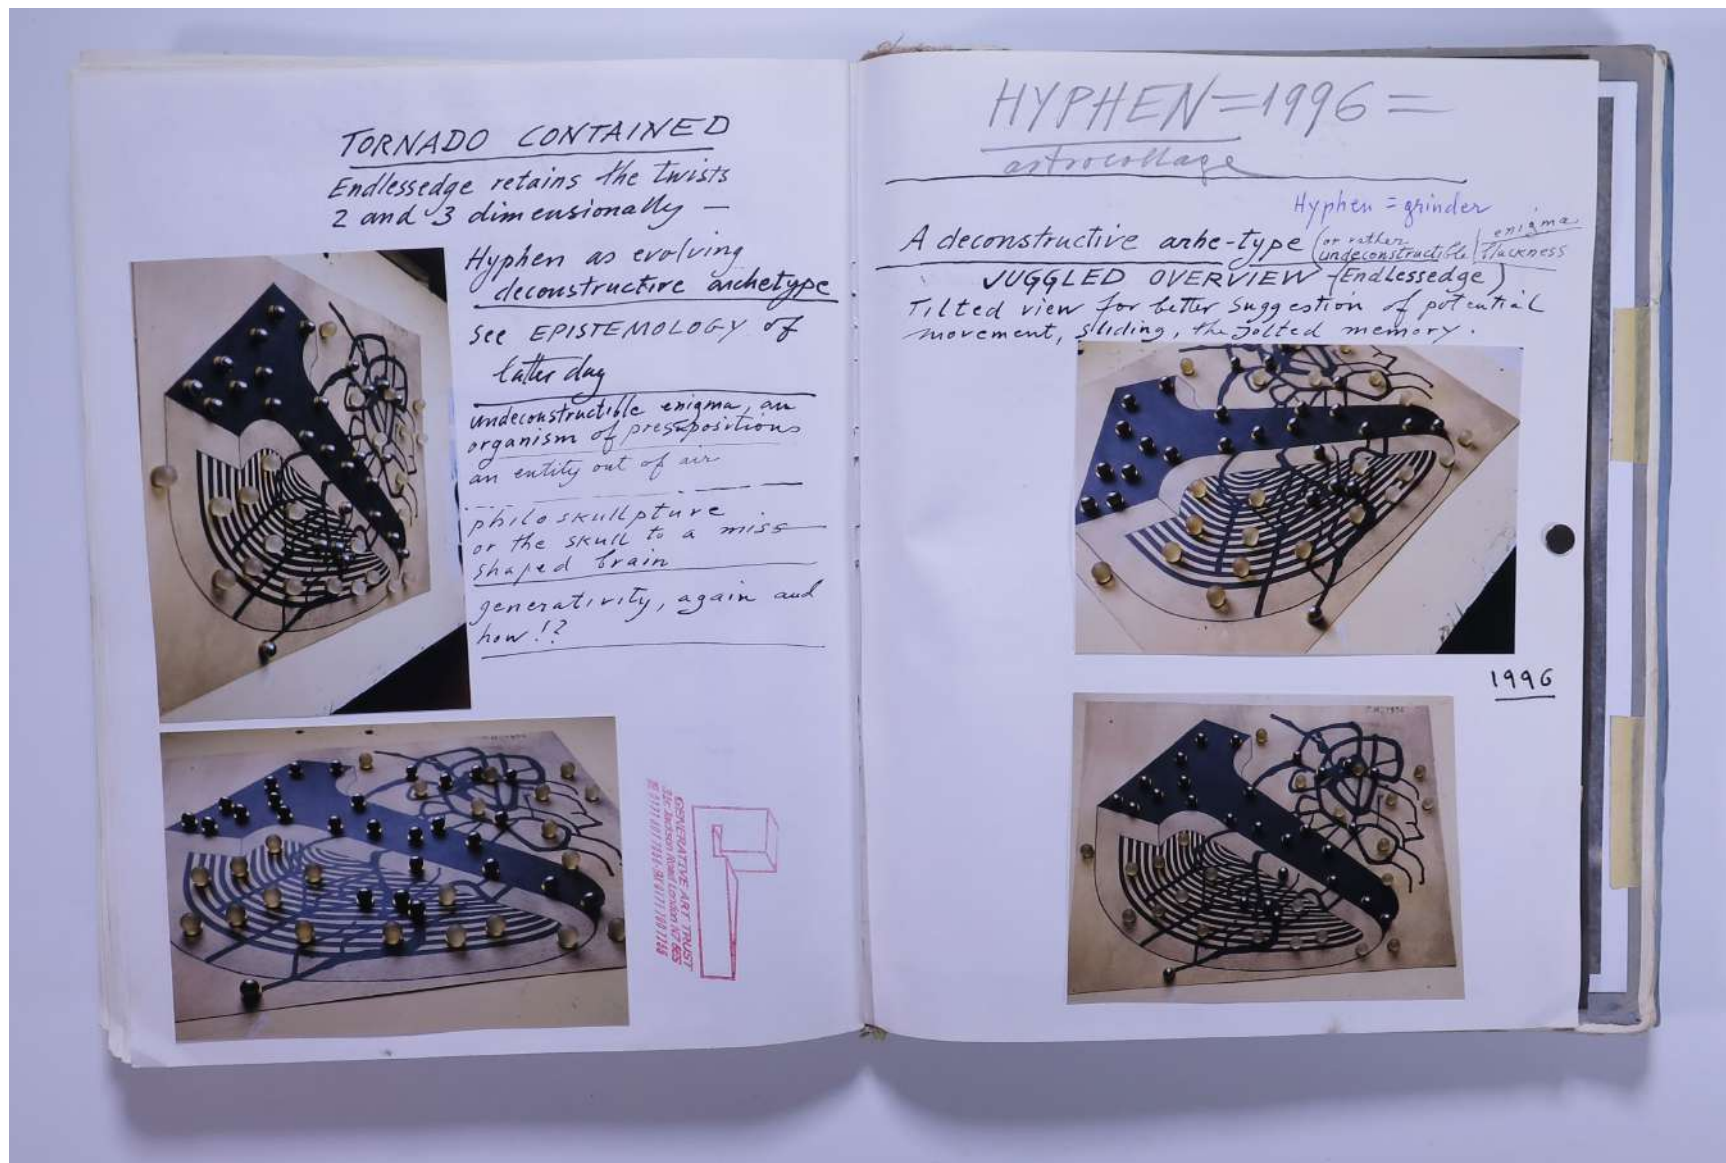 TORNADO CONTAINED
Endlessedge retains the twists
2 and 3 dimensionally —
Hyphen as evolving
deconstructive archetype
see EPISTEMOLOGY of
latter day
undeconstructible enigma, an
organism of presupositions
an entity out of air
philoskullpture
or the skull to a miss
shaped brain
generativity, again and
how!?
GENERATIVE ART TRUST
HYPHEN=1996=
astrocollage
Hyphen = grinder
A deconstructive arhe-type (or rather undeconstructible enigma
JUGGLED OVERVIEW (Endlessedge)
Tilted view for better suggestion of potential
movement, sliding, the jolted memory.
1996